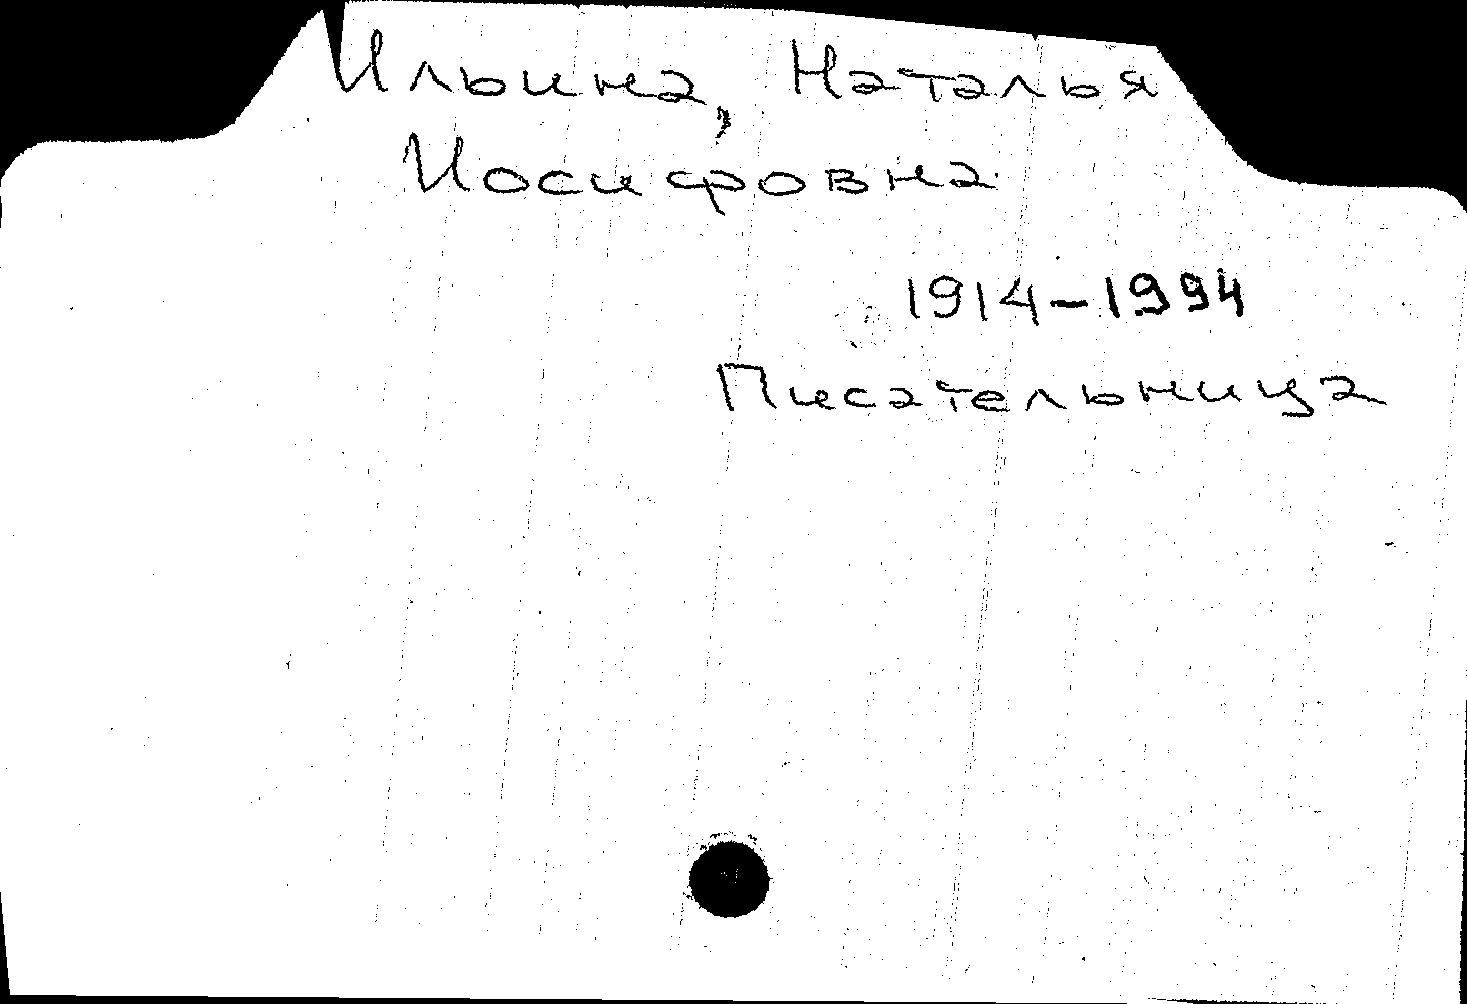 Ильина, Наталья
Иосифовна
1914-1994
Писательница